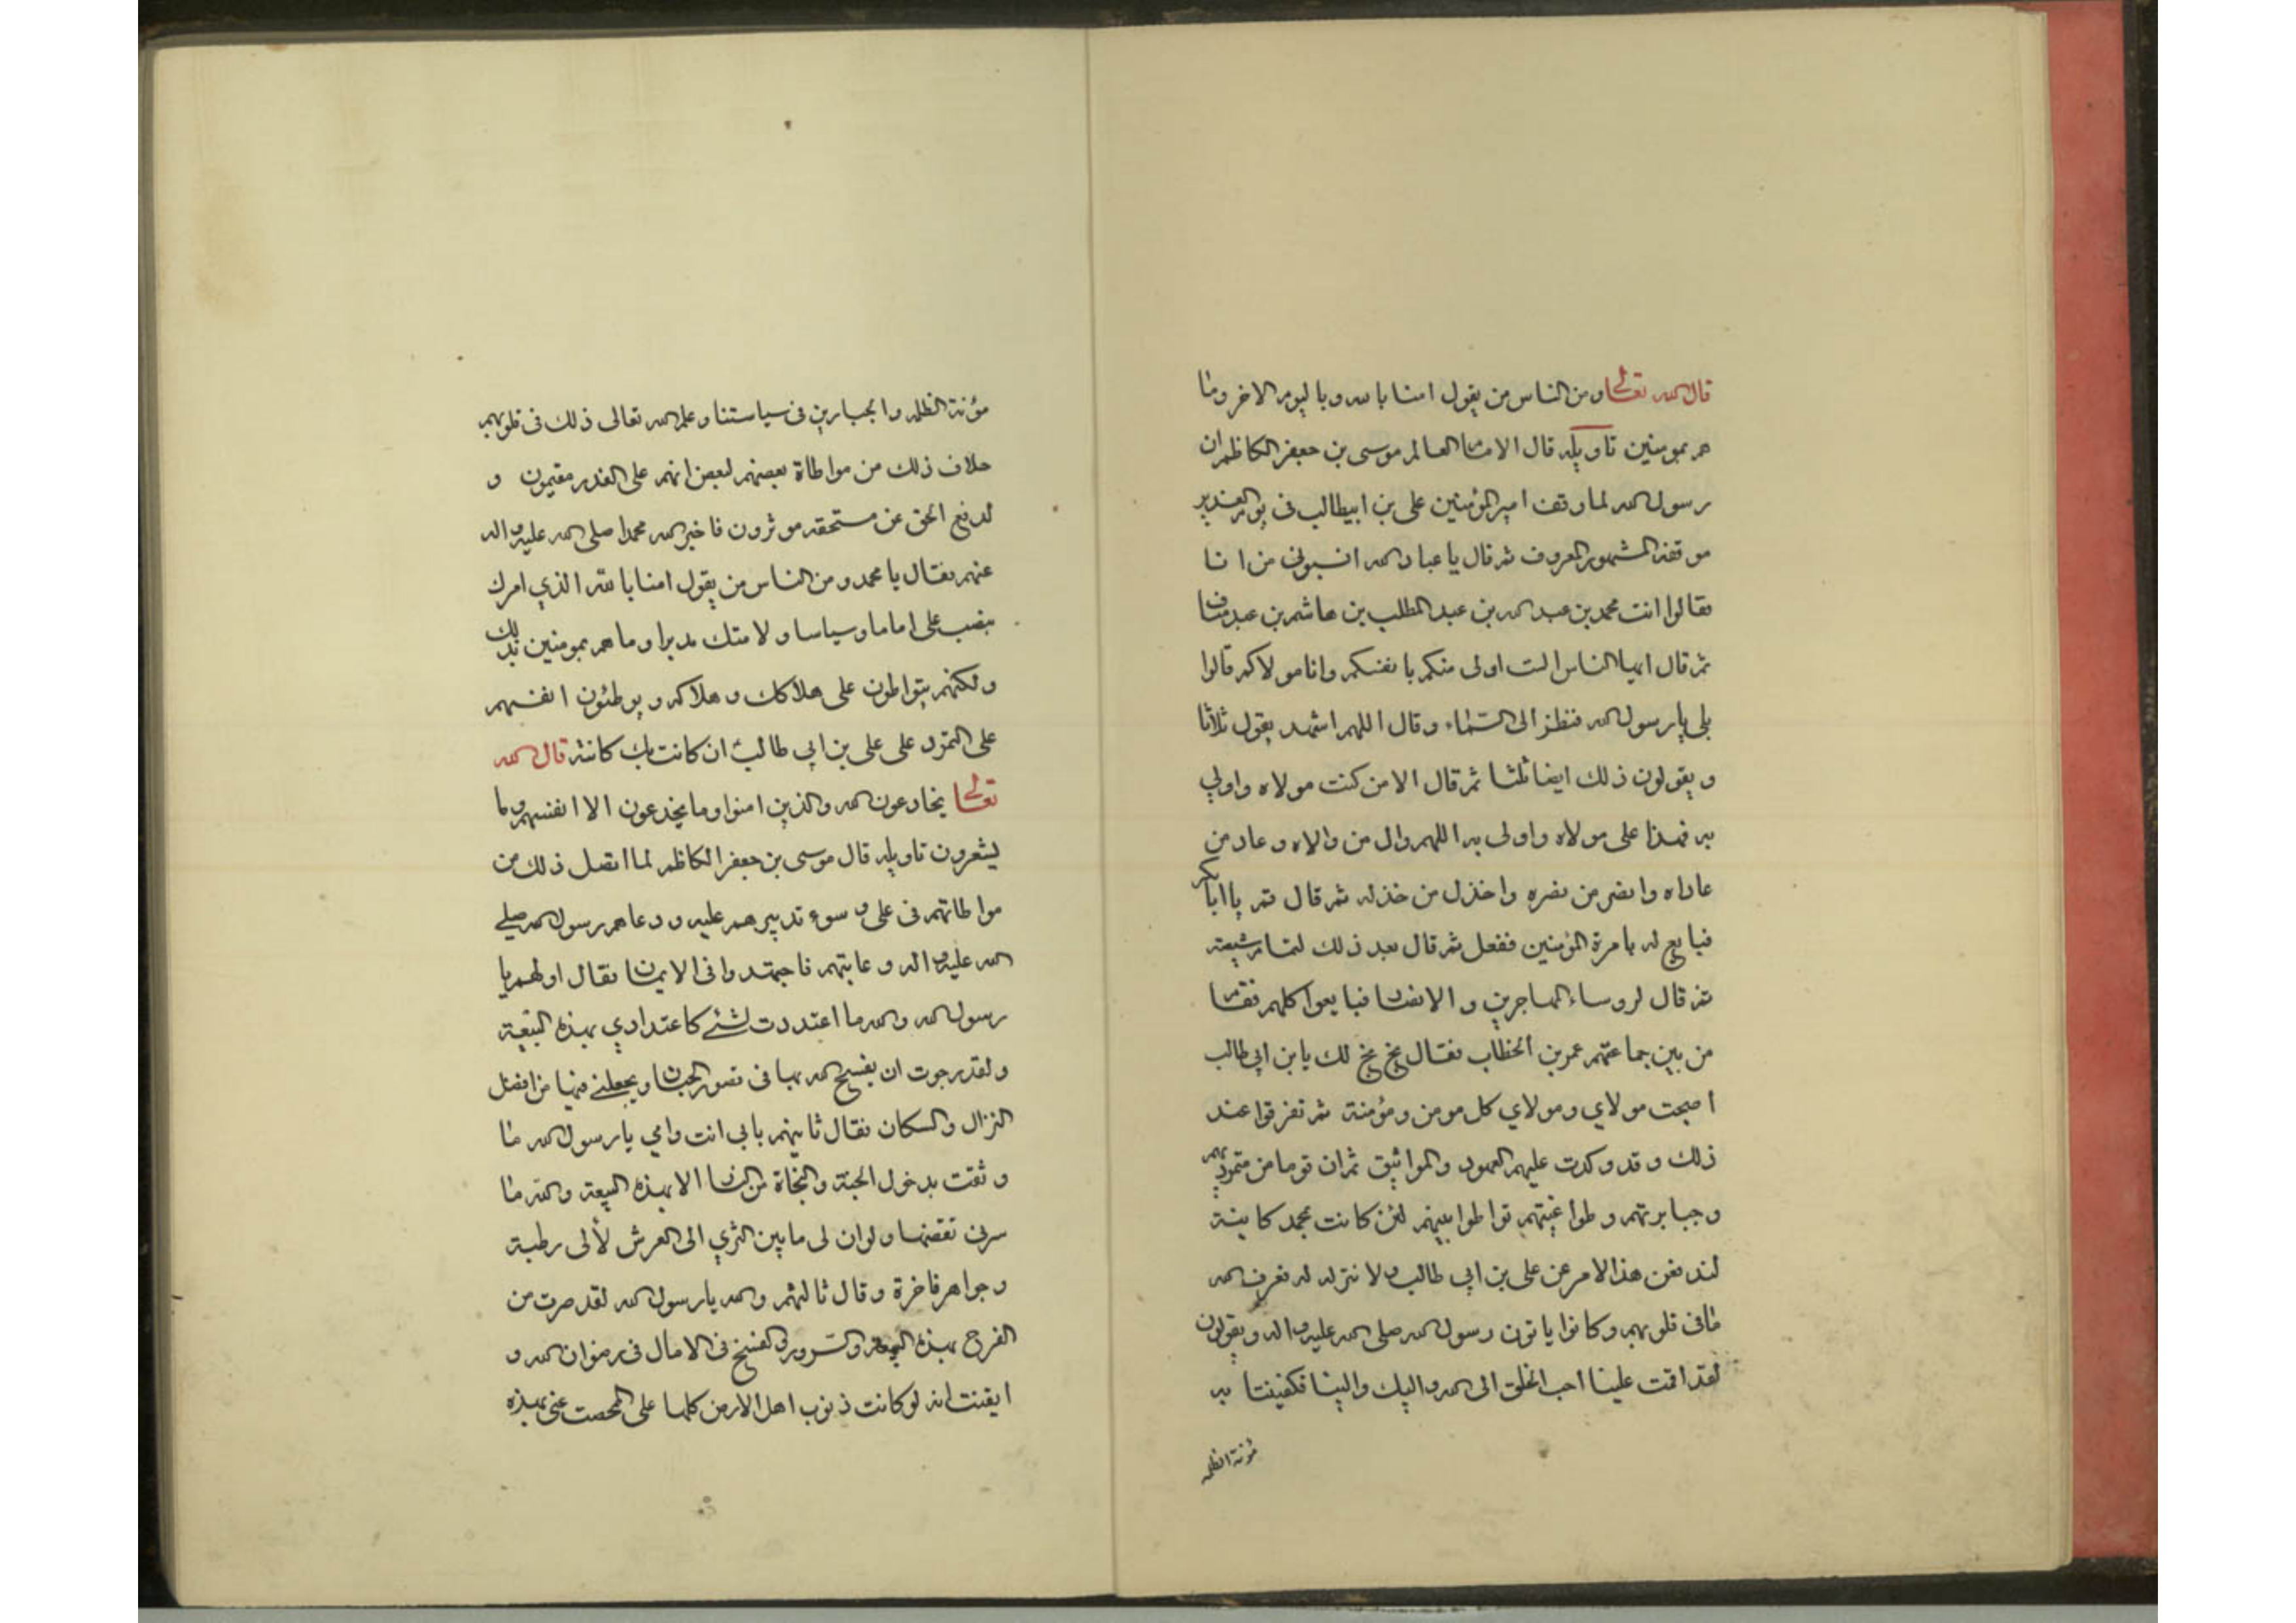 قال الله تعالى ومن الناس من يقول امنا بالله وباليوم الاخر وما
هم بمومنين تاويله قال الامام العالم موسى بن جعفر الكاظم ان
رسول الله لما وقف امير المؤمنين على بن ابيطالب فى يوم الغدير
موقفه المشهور المعروف ثم قال يا عباد الله انسبونى من انا
فقالوا انت محمد بن عبد الله بن عبد المطلب بن هاشم بن عبد مناف
ثم قال ايها الناس الست اولى منكم بانفسكم وانا مولاكم قالوا
بلى يا رسول الله فنظر الى السماء وقال اللهم اشهد يقول ثلاثا
ويقولون ذلك ايضا ثلثا ثم قال الا من كنت مولاه واولي
به فهذا على مولاه واولى به اللهم وال من والاه وعاد من
عاداه وانصر من نصره واخذل من خذله ثم قال قم يا ابا بكر
فبايع له بامرة المؤمنين ففعل ثم قال بعد ذلك لتمام تسعة
ثم قال لروساء المهاجرين والانصار فبايعوا كلهم فقام
من بين جماعتهم عمر بن الخطاب فقال بخ بخ لك يا بن ابي طالب
اصبحت مولاي ومولاي كل مومن ومؤمنة ثم تفرقوا عند
ذلك وقد وكدت عليهم العهود والمواثيق ثم ان قوما من متمرديهم
وجبابرتهم وطواغيتهم تواطوا بينهم لئن كانت بمحمد كاينة
لندفعن هذا الامر عن على بن ابي طالب ولا نتركه له فعرف الله
ما فى قلوبهم وكانوا ياتون رسول الله صلى الله عليه واله ويقولون
لقد اقمت علينا احب الخلق الى الله واليك والينا فكفيتنا به
مؤنة الظلمه
مؤنة الظلمه والجبارين فى سياستنا وعلم الله تعالى ذلك فى قلوبهم
خلاف ذلك من مواطاة بعضهم لبعض انهم على الغدر مقيمون و
لدفع الحق عن مستحقه موثرون فاخبر الله محمدا صلى الله عليه واله
عنهم فقال يا محمد ومن الناس من يقول امنا بالله الذي امرك
بنصب على اماما وسياسا ولامتك مدبرا وما هم بمومنين بذلك
ولكنهم يتواطون على هلاكك وهلاكه ويوطئون انفسهم
على التمرد على على بن ابي طالب ان كانت بك كائنة قال الله
تعالى يخادعون الله والذين امنوا وما يخدعون الا انفسهم وما
يشعرون تاويله قال موسى بن جعفر الكاظم لما اتصل ذلك من
مواطاتهم فى على وسوء تدبيرهم عليه ودعاهم رسول الله صلى
الله عليه واله وعاتبهم فاجتهدوا فى الايمان فقال اولهم يا
رسول الله والله ما اعتددت لشئ كاعتدادي بهذه البيعة
ولقد رجوت ان يفسح الله بها فى قصور الجنان ويجعلنى فيها من افضل
النزال والسكان فقال ثانيهم بابى انت وامي يا رسول الله ما
وثقت بدخول الجنة والنجاة من النار الا بهذه البيعة والله ما
سرنى نقضها ولو ان لى ما بين الثري الى العرش لألى رطبة
وجواهر فاخرة وقال ثالثهم والله يا رسول الله لقد صرت من
الفرح بهذه البيعة والسرور والفسح فى الامال فى رضوان الله و
ايقنت انه لو كانت ذنوب اهل الارض كلها على لمحصت عنى بهذه